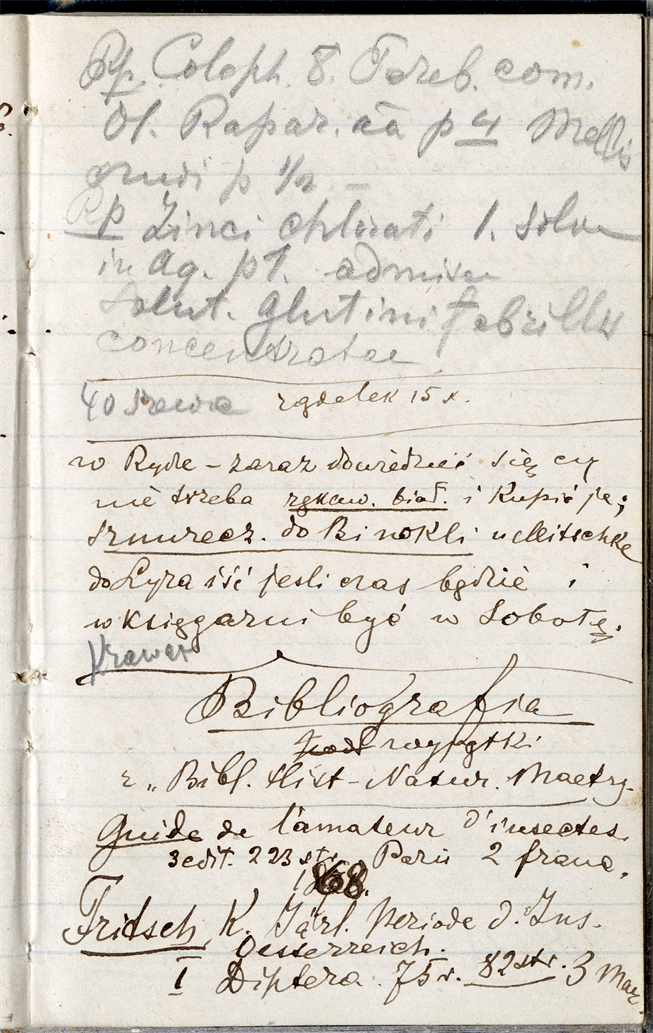 Rp. Coloph. 8. Tereb. com.
Ol. Rapar. aa p 4 Mellis
crudi p 1/2
Rp Zinci chlorati 1. Solve
in aq. pt. admisce
Solut. Glutini febrilis
concentratae
40 zgdelek 15 x.
w Rydze – zaraz dowiedzieć się czy
nie trzeba rękaw. biał. i Kupić je;
sznurecz. do Binokli u Nitschke
do Lyra iść jesli czas będzie i
w księgarni być w Sobotę.
Krawat
Bibliografia
wyjątki
z „Bibl. Hist-Natur. Maetry-
Guide de l'amateur d'insectes.
3 edit. 223 str. Paris 2 franc.
1868.
Fritsch K. Järl. Periode d. Ins.
Oesterreich.
I Diptera. 75 r. 82 str. 3 Mar